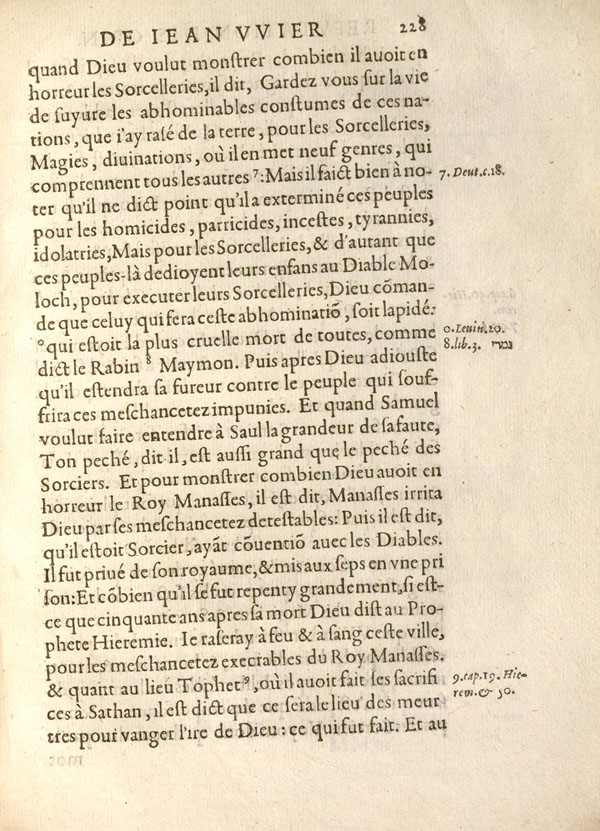 DE IEAN VVIER 228
quand Dieu voulut monſtrer combien il auoit en
horreur les Sorcelleries, il dit, Gardez vous ſur la vie
de ſuyure les abhominables conſtumes de ces na-
tions, que i'ay raſé de la terre, pour les Sorcelleries,
Magies, diuinations, où il en met neuf genres, qui
comprennent tous les autres 7: Mais il faict bien à no-
7. Deut. c. 18.
ter qu'il ne dict point qu'il a exterminé ces peuples
pour les homicides, parricides, inceſtes, tyrannies,
idolatries, Mais pour les Sorcelleries, & d'autant que
ces peuples-là dedioyent leurs enfans au Diable Mo-
loch, pour executer leurs Sorcelleries, Dieu cōman-
de que celuy qui fera ceſte abhominatiō, ſoit lapidé:
°qui eſtoit la plus cruelle mort de toutes, comme
o. Leuit. 20.
dict le Rabin 8 Maymon. Puis apres Dieu adiouſte
8. lib. 3.
qu'il eſtendra ſa fureur contre le peuple qui ſouf-
frira ces meſchancetez impunies. Et quand Samuel
voulut faire entendre à Saul la grandeur de ſa faute,
Ton peché, dit il, eſt auſſi grand que le peché des
Sorciers. Et pour monſtrer combien Dieu auoit en
horreur le Roy Manaſſes, il eſt dit, Manaſſes irrita
Dieu par ſes meſchancetez deteſtables: Puis il eſt dit,
qu'il eſtoit Sorcier, ayāt cōuentiō auec les Diables.
Il fut priué de ſon royaume, & mis aux ſeps en vne pri
ſon: Et cōbien qu'il ſe fut repenty grandement, ſi eſt-
ce que cinquante ans apres ſa mort Dieu diſt au Pro-
phete Hieremie. Ie raſeray à feu & à ſang ceſte ville,
pour les meſchancetez execrables du Roy Manaſſes.
& quant au lieu Tophet 9, où il auoit fait ſes ſacrifi
9. cap. 19. Hie-
ces à Sathan, il eſt dict que ce ſera le lieu des meur
rem. & 50.
tres pour vanger l'ire de Dieu: ce qui fut fait. Et au